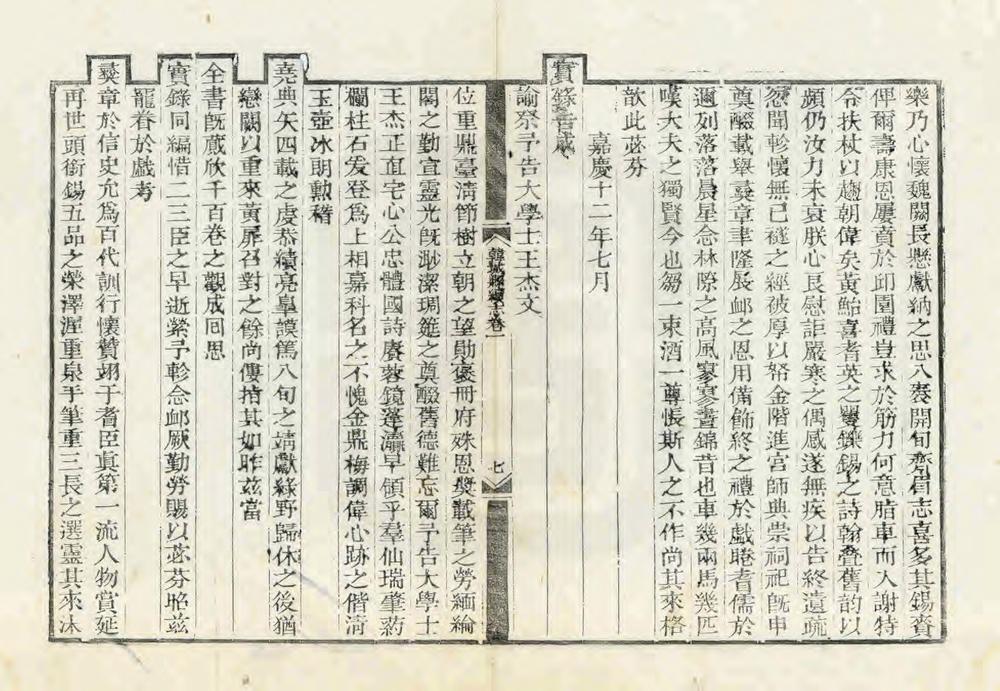 樂乃心懷魏闕長懸獻納之思八袠開旬齊眉志喜多其錫賚
俾爾壽康恩屢賁於邱園禮豈求於筋力何意脂車而入謝特
令扶杖以趨朝偉矣黃鮐喜耆英之矍鑠錫之詩翰疊舊韵以
頻仍汝力未衰朕心良慰詎嚴寒之偶感遂無疾以告終遺疏
忽聞軫懷無已襚之經被厚以帑金階進宮師典崇祠祀旣申
奠醊載舉彛章聿隆展卹之恩用備飾終之禮於戲睠耆儒於
邇列落落晨星念林隙之高風寥寥晝錦昔也車幾兩馬幾匹
嘆大夫之獨賢今也芻一束酒一尊悵斯人之不作尚其來格
歆此苾芬
嘉慶十二年七月
實錄書成
諭祭予告大學士王杰文
韓城縣續志卷一
七
位重鼎臺淸節樹立朝之望勛褒冊府殊恩奬載筆之勞緬綸
閣之勤宣靈光旣渺潔琱筵之奠醊舊德難忘爾予告大學士
王杰正直宅心公忠體國詩賡蓉鏡蓬瀛早領乎羣仙瑞肇葯
欄柱石爰登爲上相嘉科名之不愧金鼎梅調偉心跡之偕淸
玉壺冰朗勲稽
堯典矢四載之虔恭績亮臯謨篤八旬之靖獻綠野歸休之後猶
戀闕以重來黃扉召對之餘尚僂指其如昨兹當
全書旣蕆欣千百卷之觀成回思
實錄同編惜二三臣之早逝縈予軫念卹厥勤勞賜以苾芬昭兹
寵眷於戲考
彛章於信史允爲百代訓行懷贊翊于耆臣眞第一流人物賞延
再世頭銜錫五品之榮澤渥重泉手筆重三長之選靈其來沐